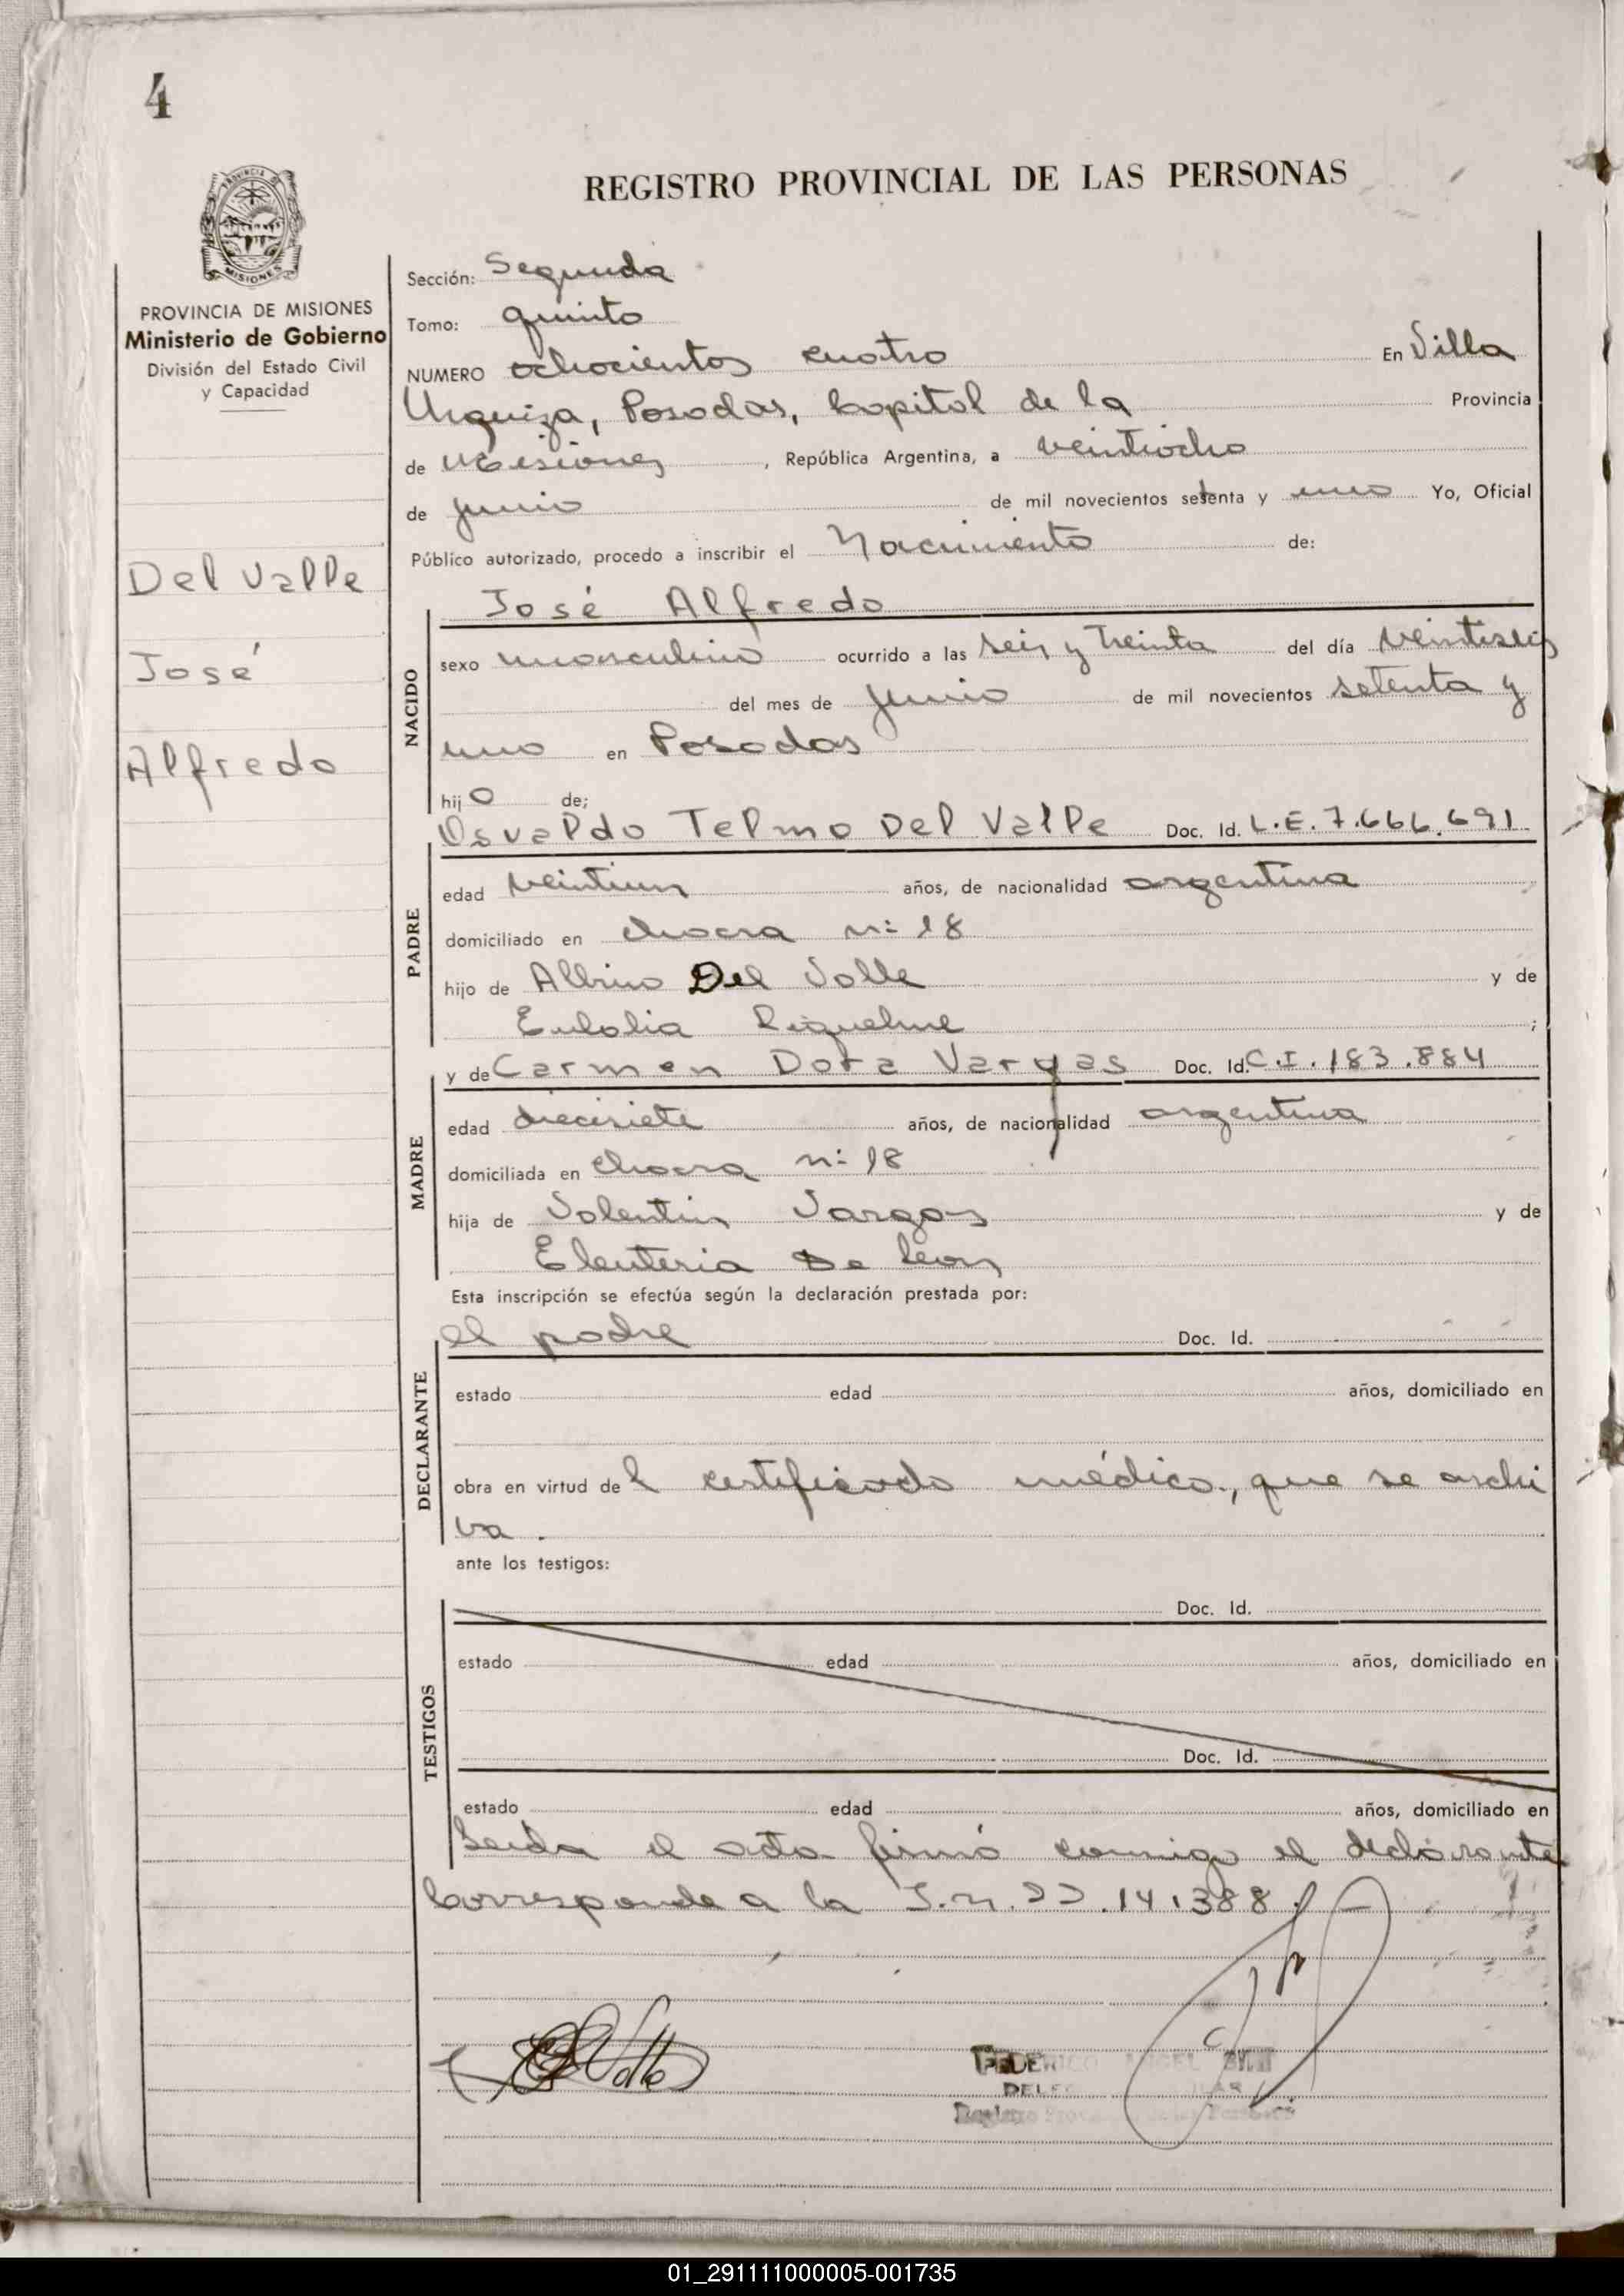 4
REGISTRO PROVINCIAL DE LAS PERSONAS
PROVINCIA DE MISIONES
Ministerio de Gobierno
División del Estado Civil
y Capacidad
Del Valle
José
Alfredo
Sección: Segunda
Tomo: quinto
NUMERO ochocientos cuatro En Villa
Urquiza, Posadas, Capital de la Provincia
de Misiones, República Argentina, a veintiocho
de junio de mil novecientos setenta y uno Yo, Oficial
Público autorizado, procedo a inscribir el Nacimiento de:
José Alfredo
NACIDO
sexo masculino ocurrido a las seis y treinta del día veintiseis
del mes de junio de mil novecientos setenta y
uno en Posadas
hijo de;
Osvaldo Telmo Del Valle Doc. Id. L.E. 7.666.691
PADRE
edad veintiun años, de nacionalidad argentina
domiciliado en chacra nº 18
hijo de Albino Del Valle y de
Eulalia Riquelme ;
y de Carmen Dora Vargas Doc. Id. C.I. 183.884
MADRE
edad diecisiete años, de nacionalidad argentina
domiciliada en chacra nº 18
hija de Valentin Vargas y de
Eleuteria De Leon
Esta inscripción se efectúa según la declaración prestada por:
el padre Doc. Id.
DECLARANTE
estado edad años, domiciliado en
obra en virtud del certificado médico, que se archi
va.
ante los testigos:
Doc. Id.
TESTIGOS
estado edad años, domiciliado en
Doc. Id.
estado edad años, domiciliado en
Leida el acta firmó conmigo el declarante
Corresponde a la 141388.
Valle
FEDERICO
Registro
01_291111000005-001735